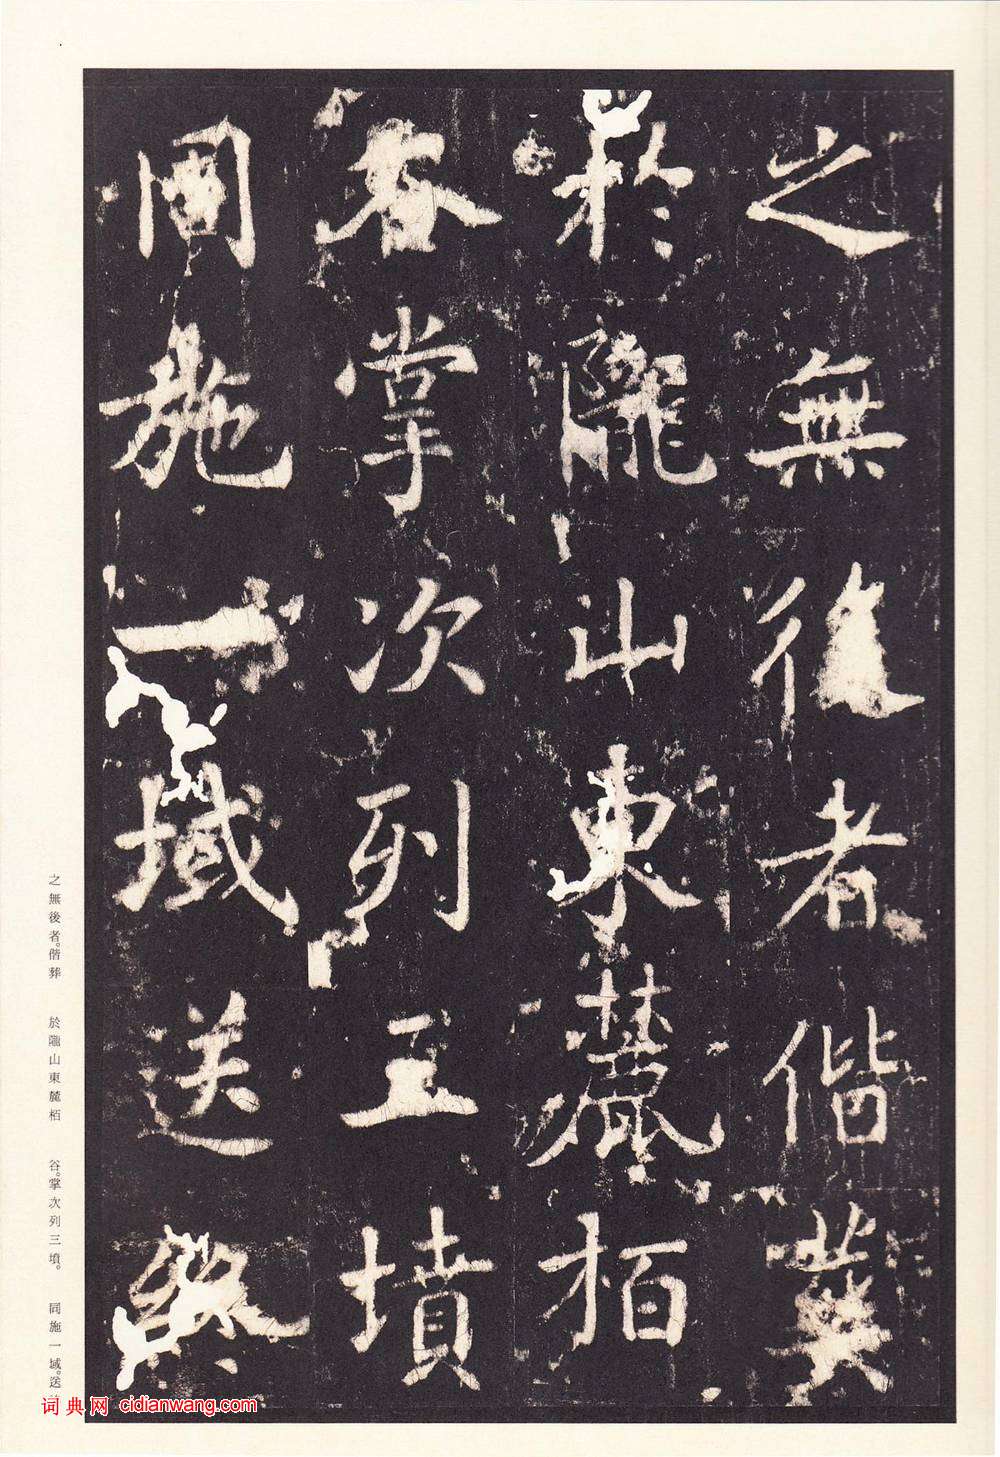 之無後者偕葬
於隴山東麓栢
谷掌次列三墳
同施一域送終
之無後者。偕葬 於隴山東麓栢 谷。掌次列三墳。 同施一域。送
词典网 cidianwang.com